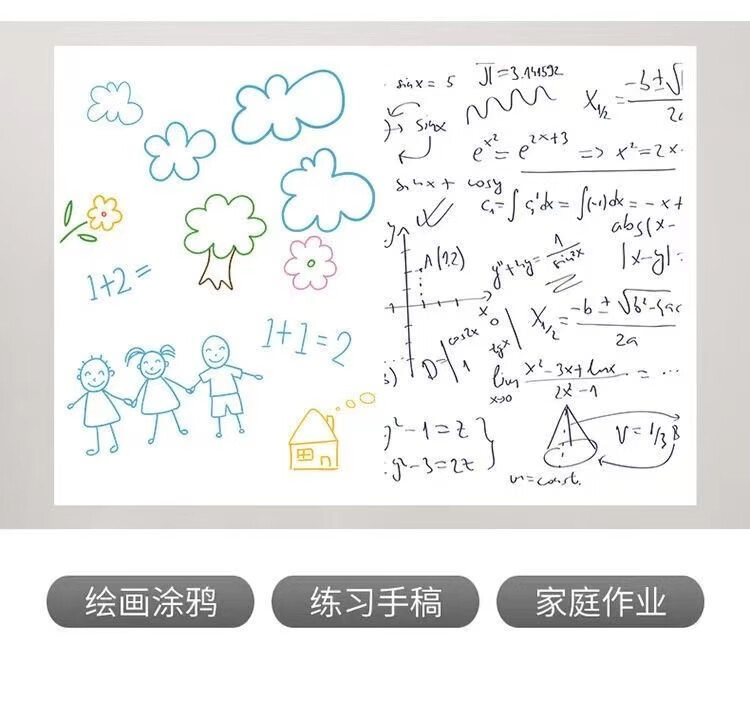 1+2=
1+1=2
sin x = 5
π=3.141592
sin x
X₁/₂ = -b ± √
2a
e^{x²} = e^{2x+3} => x² = 2x
sin x + cos y
c₁ = ∫ c₁' dx = ∫ (-1) dx = -x +
abs(x-
y
A(1,2)
y'' + 4y = 1/sin2x
|x-y|
x
X₁/₂ = -b ± √b²-4ac
2a
D = | cos2x 0
1 tg x |
lim x→0 x² - 3x + ln x / 2x² - 1 = ...
y² - 1 = z
y² - 3 = 2z }
V = 1/3 B
v = const.
绘画涂鸦
练习手稿
家庭作业